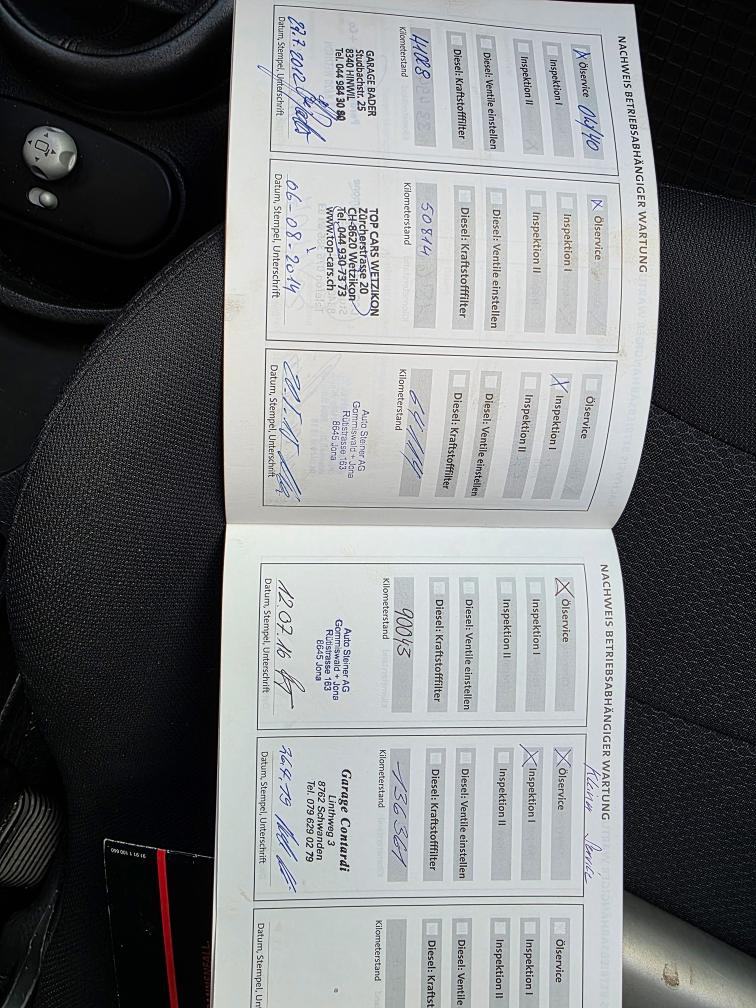 NACHWEIS BETRIEBSABHÄNGIGER WARTUNG
X Ölservice 0W/40
Inspektion I
Inspektion II
Diesel: Ventile einstellen
Diesel: Kraftstofffilter
41028
Kilometerstand
GARAGE BADER
Studbachstr. 25
8340 HINWIL
Tel. 044 984 30 80
Datum, Stempel, Unterschrift
X Ölservice
Inspektion I
Inspektion II
Diesel: Ventile einstellen
Diesel: Kraftstofffilter
50814
Kilometerstand
TOP CARS WETZIKON
Zürcherstrasse 20
CH-8620 Wetzikon
Tel. 044 930 73 73
www.top-cars.ch
06-08-2014
Datum, Stempel, Unterschrift
Ölservice
X Inspektion I
Inspektion II
Diesel: Ventile einstellen
Diesel: Kraftstofffilter
Kilometerstand
Auto Steiner AG
Gommiswald + Jona
Rütistrasse 163
8645 Jona
Datum, Stempel, Unterschrift
NACHWEIS BETRIEBSABHÄNGIGER WARTUNG
X Ölservice
Inspektion I
Inspektion II
Diesel: Ventile einstellen
Diesel: Kraftstofffilter
90043
Kilometerstand
Auto Steiner AG
Gommiswald + Jona
Rütistrasse 163
8645 Jona
12.07.16
Datum, Stempel, Unterschrift
Kleiner Service
X Ölservice
X Inspektion I
Inspektion II
Diesel: Ventile einstellen
Diesel: Kraftstofffilter
136361
Kilometerstand
Garage Contardi
Linthweg 3
8762 Schwanden
Tel. 079 629 02 79
26.4.19
Datum, Stempel, Unterschrift
Ölservice
Inspektion I
Inspektion II
Diesel: Ventile
Diesel: Kraftst
Kilometerstand
Datum, Stempel, Un
91 91 1 100 660